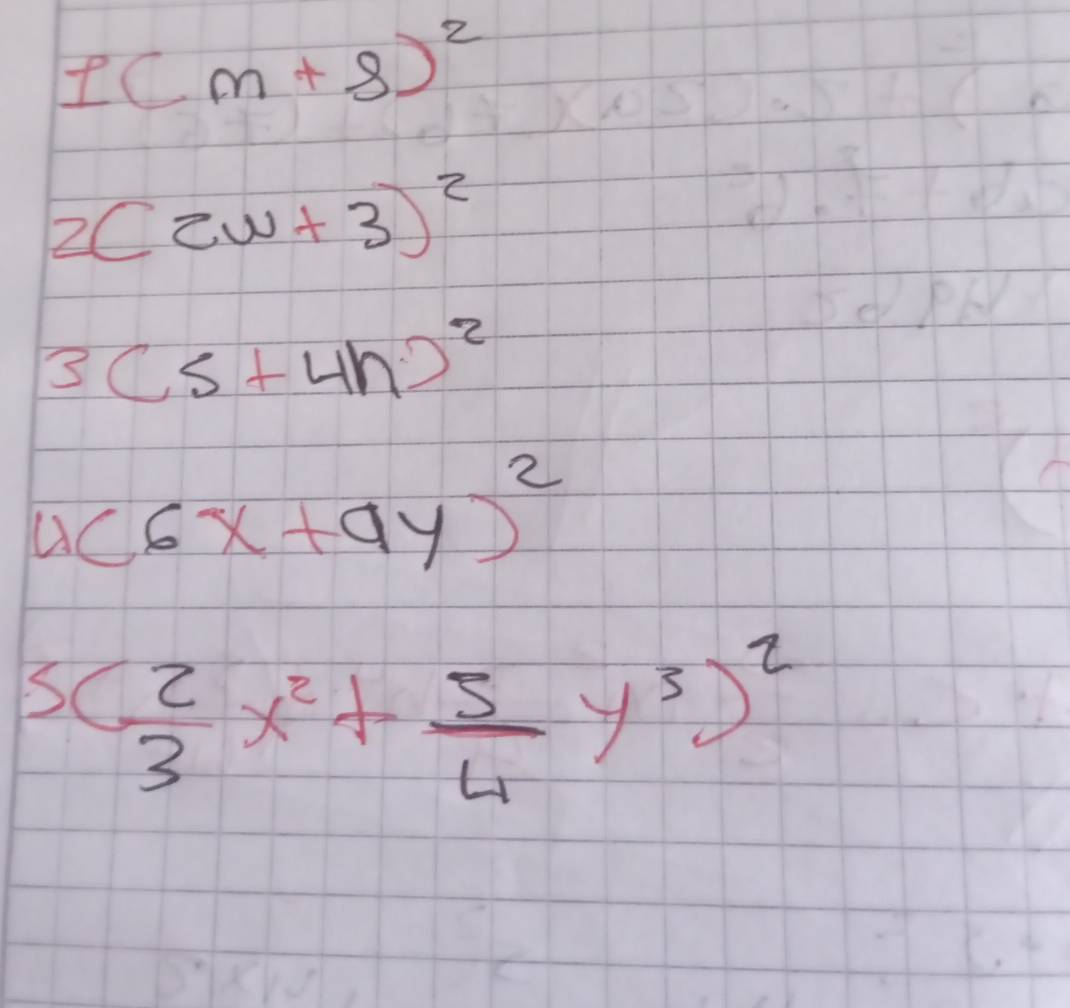 1( m + 8)²
2( 2w + 3)²
3( 5 + 4h)²
4( 6x + 9y )²
5( 2/3 x² + 5/4 y³ )²